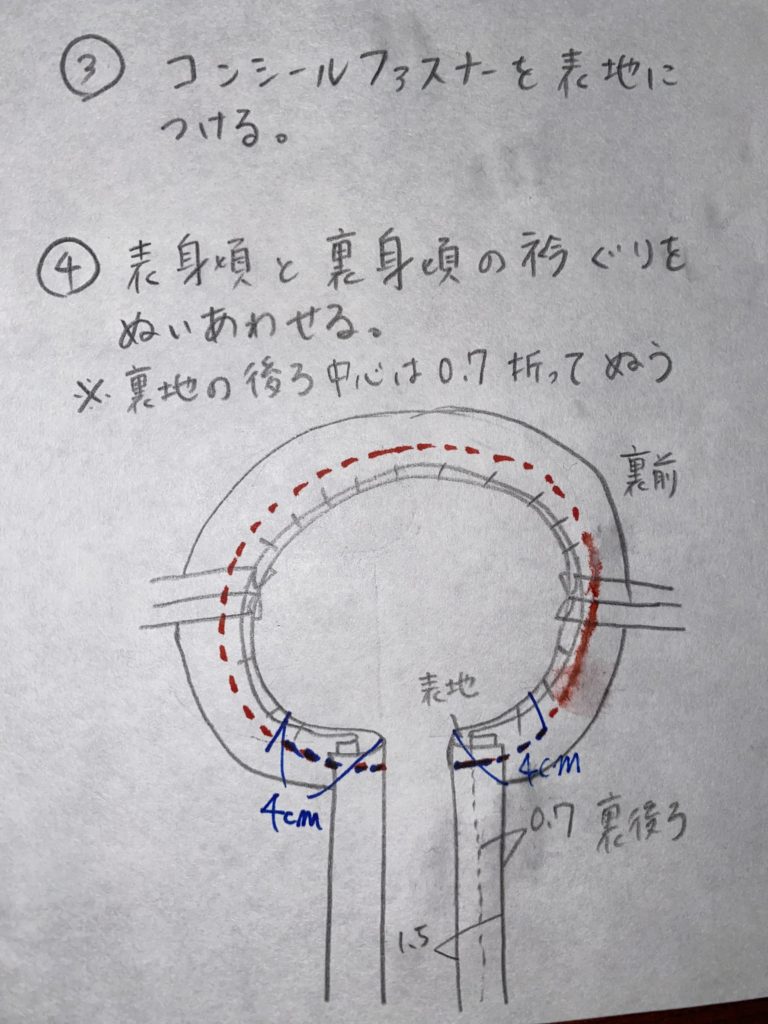 ③ コンシールファスナーを表地に
つける。
④ 表身頃と裏身頃の衿ぐりを
ぬいあわせる。
※ 裏地の後ろ中心は0.7折ってぬう
裏前
表地
4cm
4cm
0.7 裏後ろ
1.5